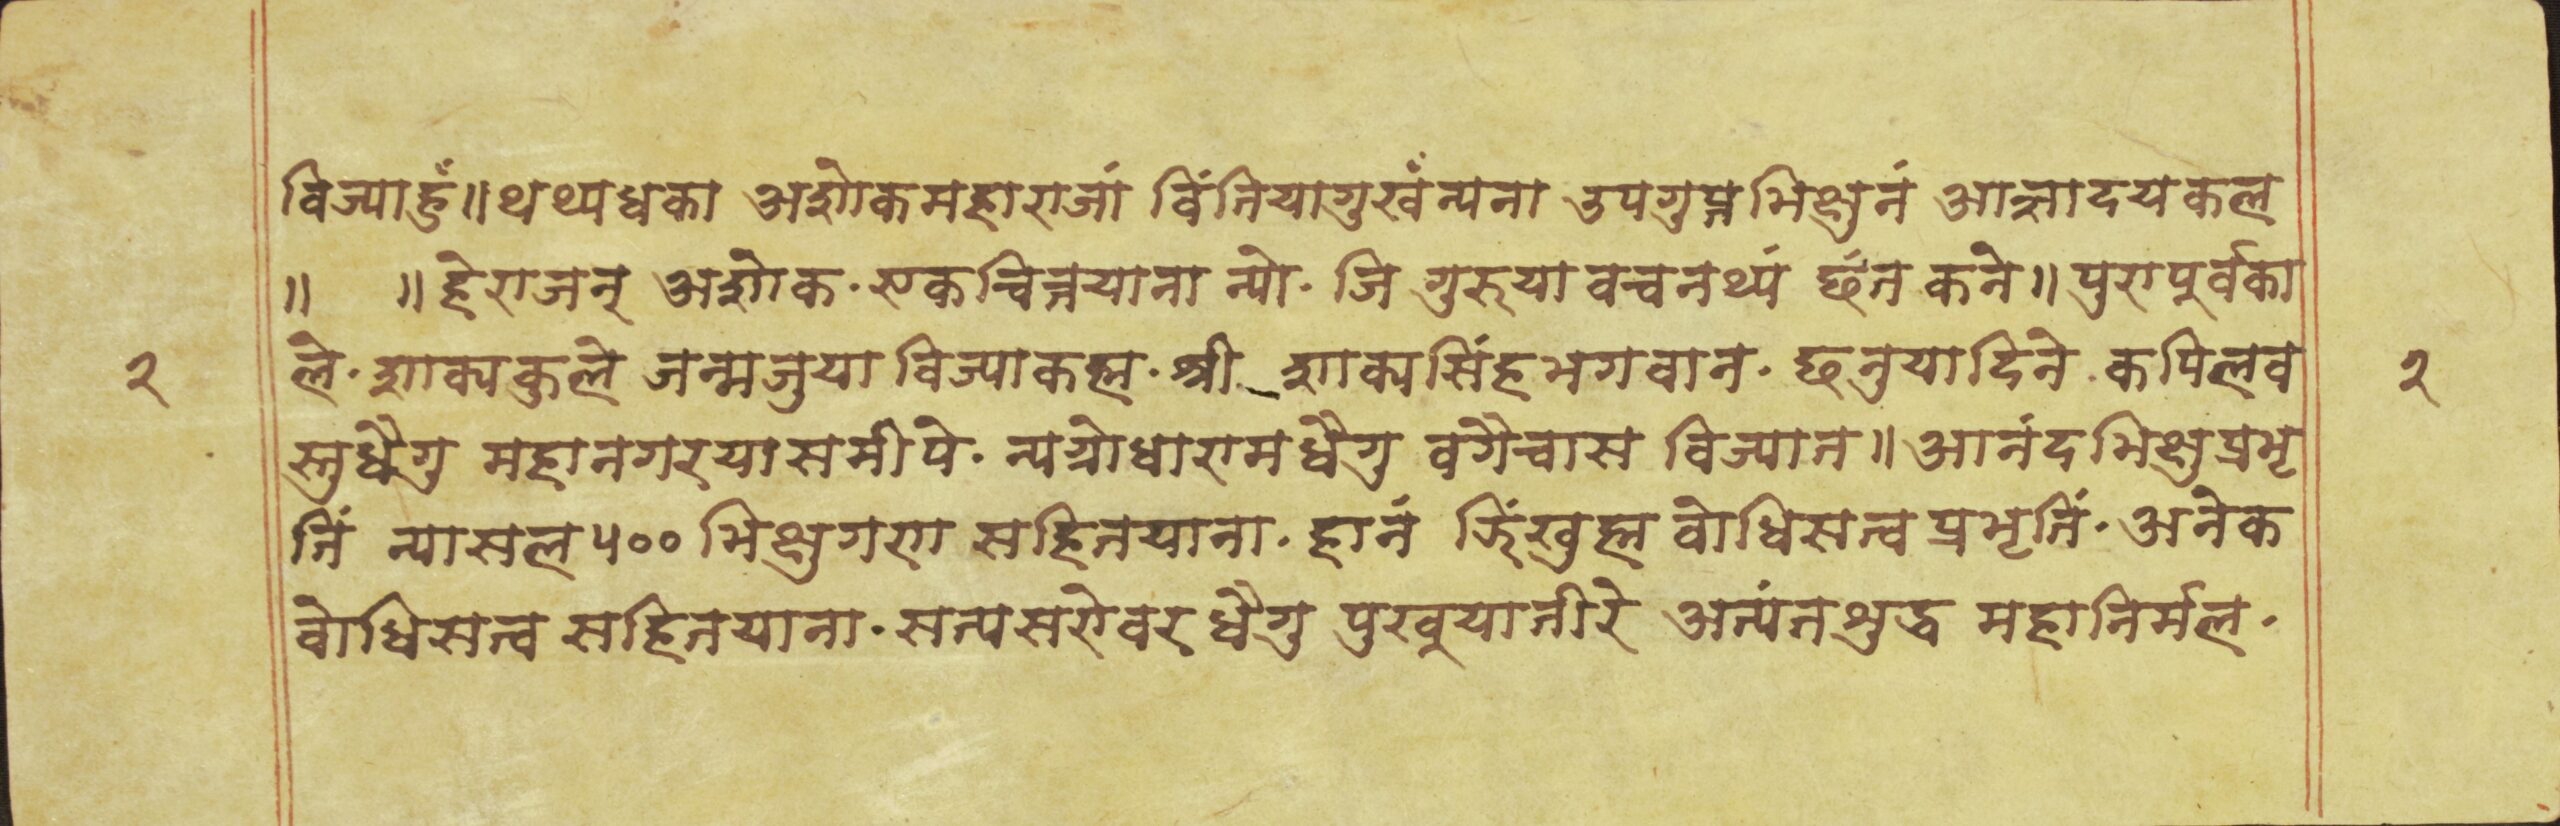 विज्याहुँ॥थथ्यधका अशोकमहाराजां विंतियागुखँन्यना उपगुप्तभिक्षुनं आज्ञादयकल
॥ ॥हेराजन् अशोक·एकचित्तयाना न्यो·जि गुरुयावचनथ्यं छंत कने॥पुरापूर्वका
२ ले·शाक्यकुले जन्मजुयाविज्याकह्म·श्री शाक्यसिंहभगवान·छनुयादिने कपिलव २
स्तुधैगु महानगरयासमीपे·न्यग्रोधारामधैगु वगैचास विज्यात॥आनंदभिक्षुप्रभृ
तिं न्यासल५००भिक्षुगण सहितयाना·हानं जिंखुह्म बोधिसत्व प्रभृतिं·अनेक
बोधिसत्व सहितयाना·सत्यसरोवरधैगु पुखूयातीरे अत्यंतशुद्ध महानिर्मल·